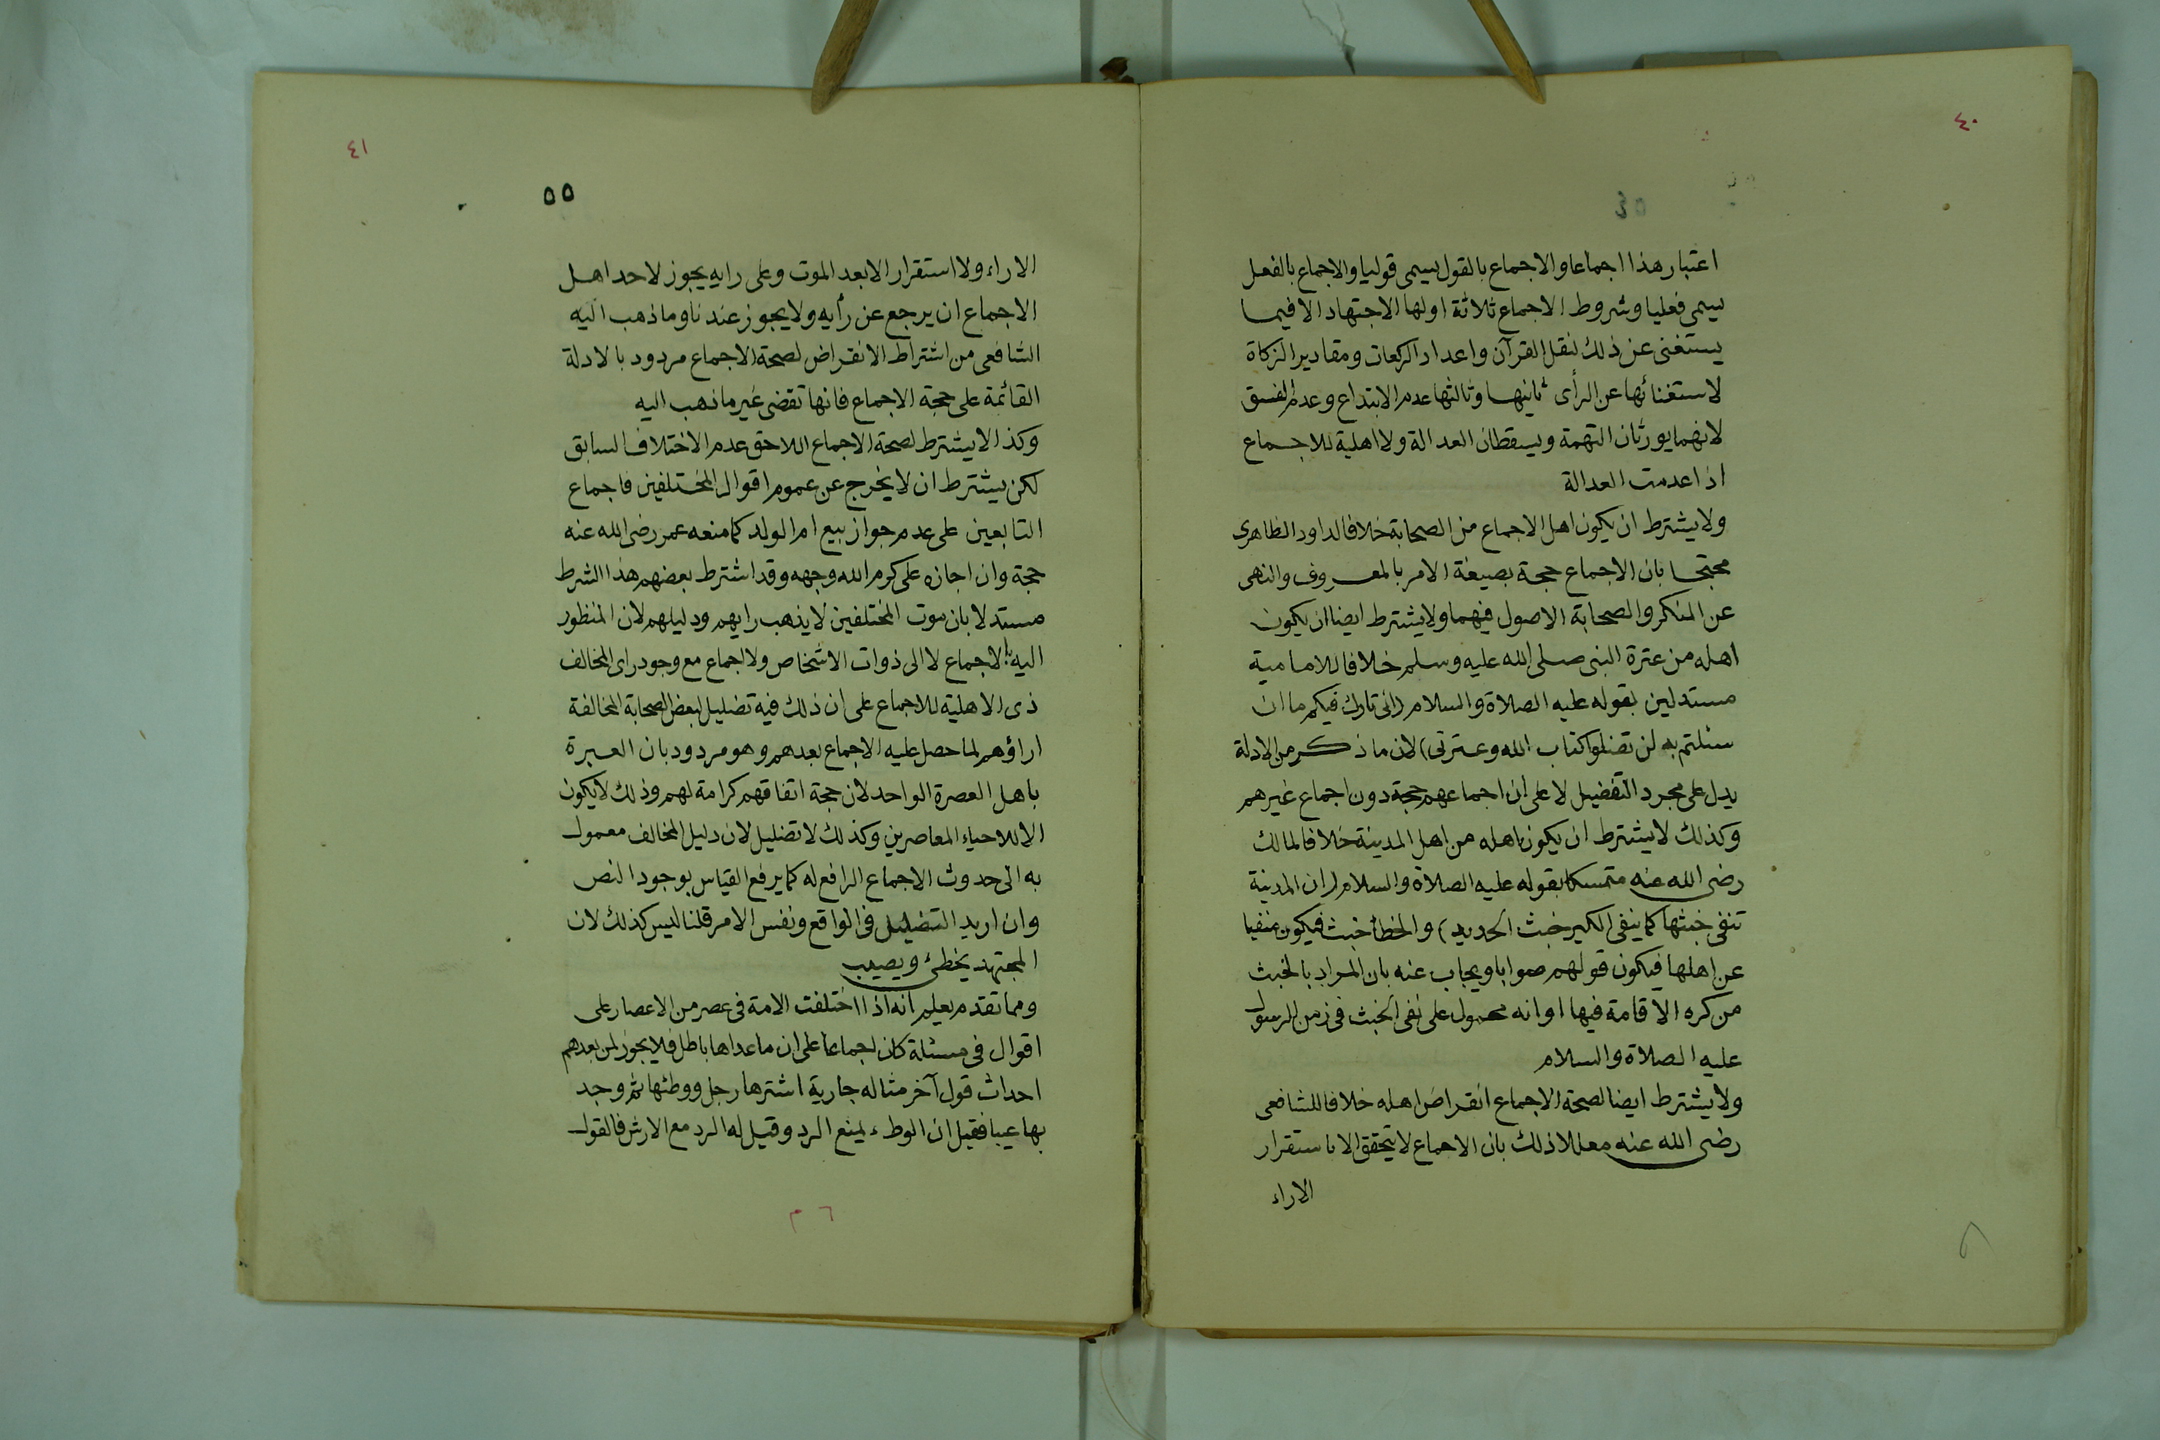 ٤٠
٥٤
اعتبار هذا اجماعا والاجماع بالقول يسمى قوليا والاجماع بالفعل
يسمى فعليا وشروط الاجماع ثلاثة اولها الاجتهاد الا فيما
يستغنى عن ذلك لنقل القرآن واعداد الركعات ومقادير الزكاة
لاستغنائها عن الرأى ثانيها وثالثها عدم الابتداع وعدم الفسق
لانهما يورثان التهمة ويسقطان العدالة ولا اهلية للاجماع
اذا عدمت العدالة
ولا يشترط ان يكون اهل الاجماع من الصحابة خلافا لداود الظاهرى
محتجا بان الاجماع حجة بصيغة الامر بالمعروف والنهى
عن المنكر والصحابة الاصول فيهما ولا يشترط ايضا ان يكون
اهله من عترة النبى صلى الله عليه وسلم خلافا للامامية
مستدلين بقوله عليه الصلاة والسلام (انى تارك فيكم ما ان
سئلتم به لن تضلوا كتاب الله وعترتى) لان ما ذكر من الادلة
يدل على مجرد التفضيل لا على ان اجماعهم حجة دون اجماع غيرهم
وكذلك لا يشترط ان يكون اهله من اهل المدينة خلافا لمالك
رضى الله عنه متمسكا بقوله عليه الصلاة والسلام (ان المدينة
تنفى خبثها كما ينفى الكير خبث الحديد) والخطأ خبث فيكون منفيا
عن اهلها فيكون قولهم صوابا ويجاب عنه بان المراد بالخبث
من كره الاقامة فيها اوانه محمول على نفى الخبث فى زمن الرسول
عليه الصلاة والسلام
ولا يشترط ايضا لصحة الاجماع انقراض اهله خلافا للشافعى
رضى الله عنه معللا ذلك بان الاجماع لا يتحقق الا باستقرار
الاراء
٤١
٥٥
الاراء ولا استقرار الا بعد الموت وعلى رايه يجوز لاحد اهل
الاجماع ان يرجع عن رأيه ولا يجوز عندنا وما ذهب اليه
الشافعى من اشتراط الانقراض لصحة الاجماع مردود بالادلة
القائمة على حجة الاجماع فانها تقضى غير ما ذهب اليه
وكذا لا يشترط لصحة الاجماع اللاحق عدم الاختلاف السابق
لكن يشترط ان لا يخرج عن عموم اقوال المختلفين فاجماع
التابعين على عدم جواز بيع ام الولد كما منعه عمر رضى الله عنه
حجة وان اجازه على كرم الله وجهه وقد اشترط بعضهم هذا الشرط
مستدلا بان موت المختلفين لا يذهب رايهم ودليلهم لان المنظور
اليه بالاجماع لا الى ذوات الاشخاص ولا اجماع مع وجود راى المخالف
ذى الاهلية للاجماع على ان ذلك فيه تضليل لبعض الصحابة المخالفة
اراؤهم لما حصل عليه الاجماع بعدهم وهو مردود بان العبرة
باهل العصرة الواحد لان حجة اتفاقهم كرامة لهم وذلك لا يكون
الا للاحياء المعاصرين وكذلك لا تضليل لان دليل المخالف معمول
به الى حدوث الاجماع الرافع له كما يرفع القياس بوجود النص
وان اريد التضليل فى الواقع ونفس الامر قلنا ليس كذلك لان
المجتهد يخطئ ويصيب
ومما تقدم يعلم انه اذا اختلفت الامة فى عصر من الاعصار على
اقوال فى مسئلة كان اجماعا على ان ما عداها باطل فلا يجوز لمن بعدهم
احداث قول آخر مثاله جارية اشترها رجل ووطئها ثم وجد
بها عيبا فقيل ان الوطء يمنع الرد وقيل له الرد مع الارش فالقول
٦ م